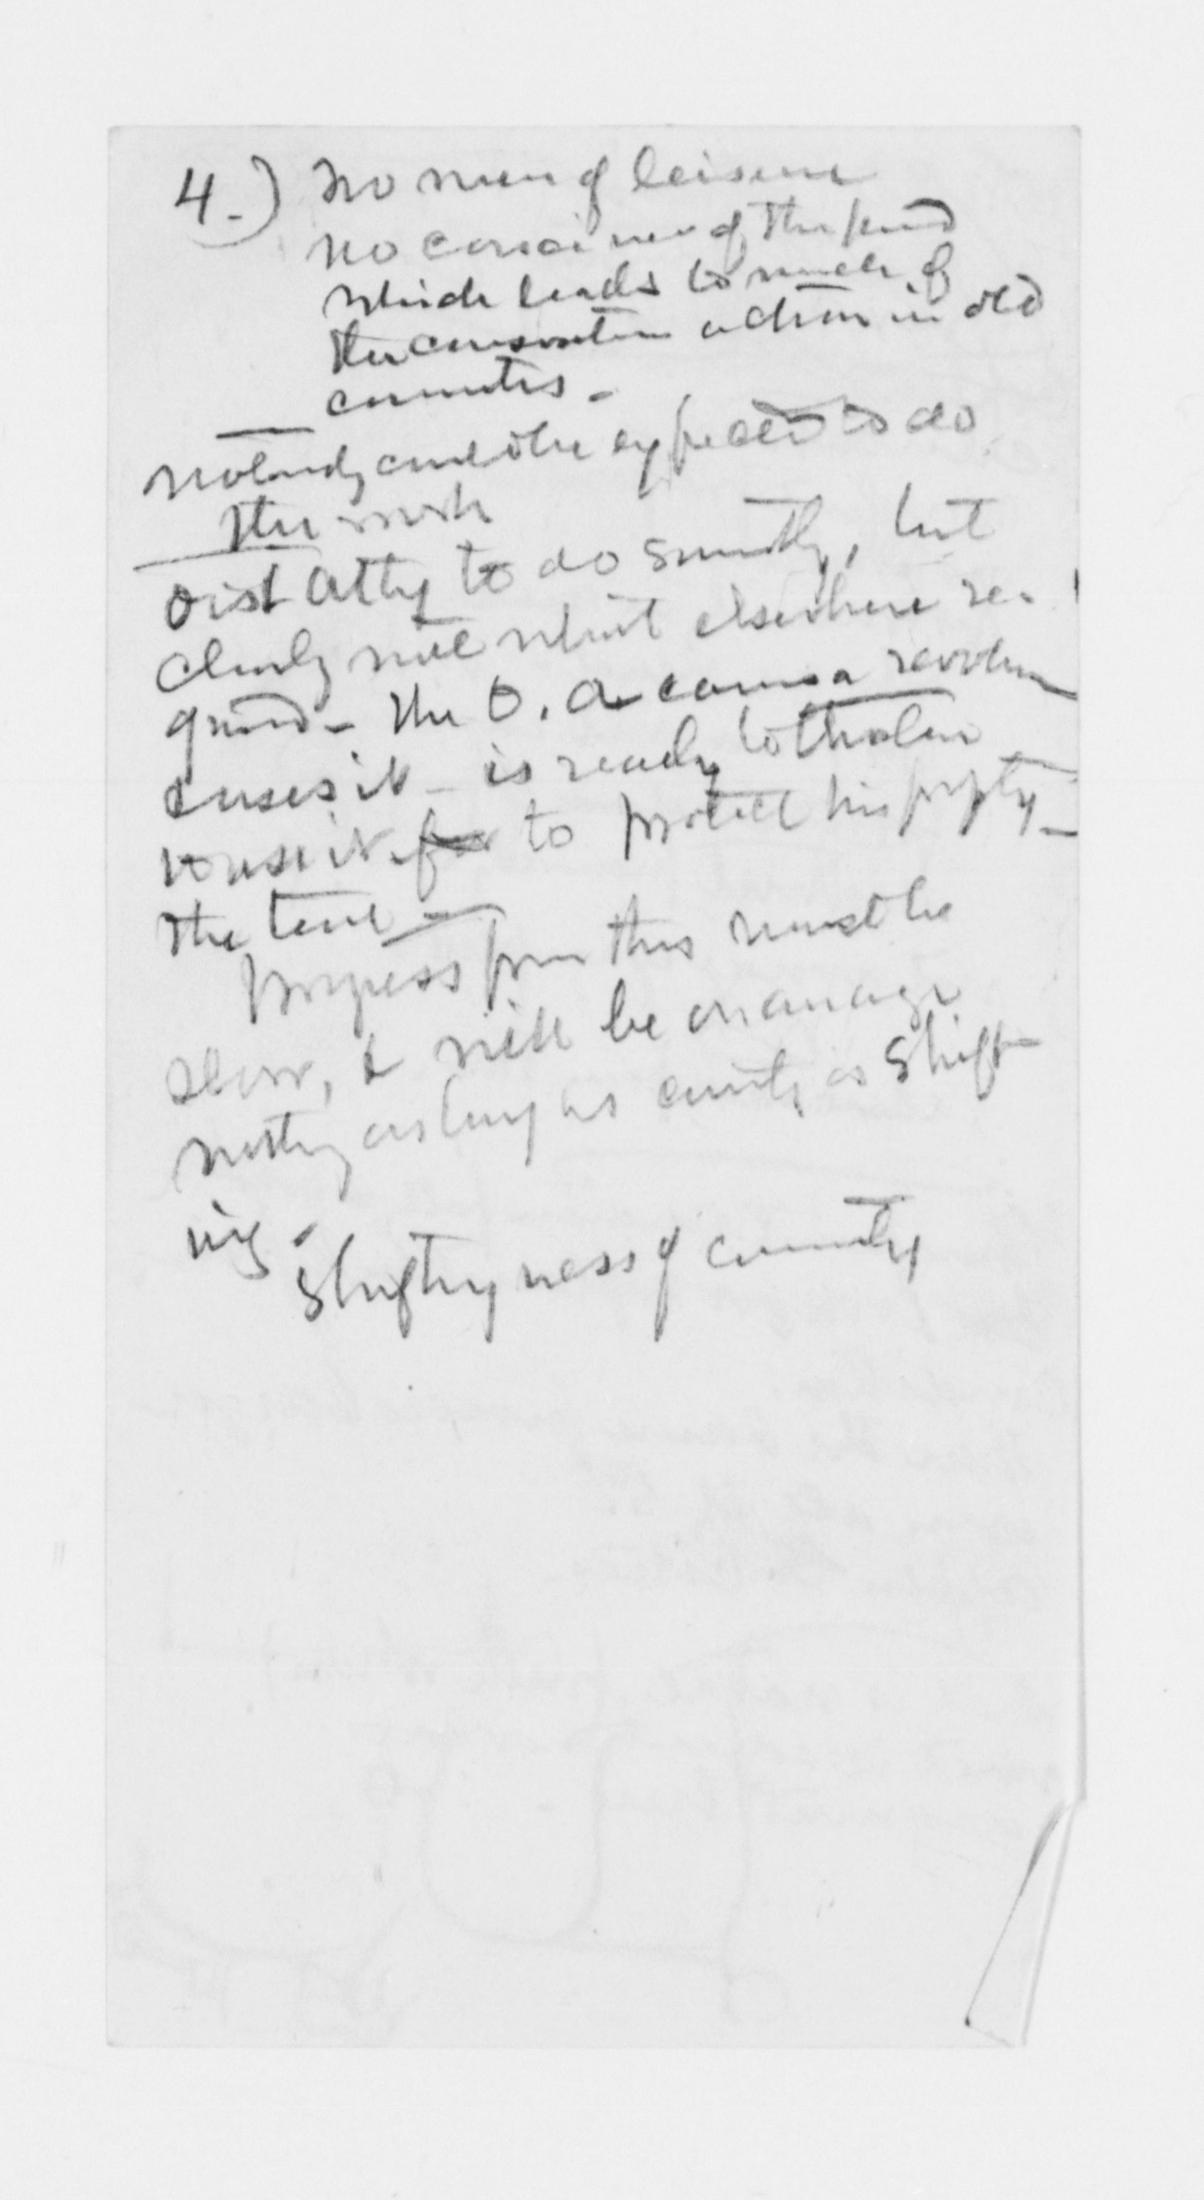 4.) No men of leisure
No of the kind
which leads to much of
the conservative action in old
countries.
nobody could be expected to do
the work
Dist Atty to do something, but
clearly not what elsewhere re-
quired - the D. A. carries a revolver
& uses it - is ready to threaten
to use it for to protect his property -
the tent -
Progress from this must be
slow, & will be on average
nothing as long as county is shift-
ing.
Shiftyness of county